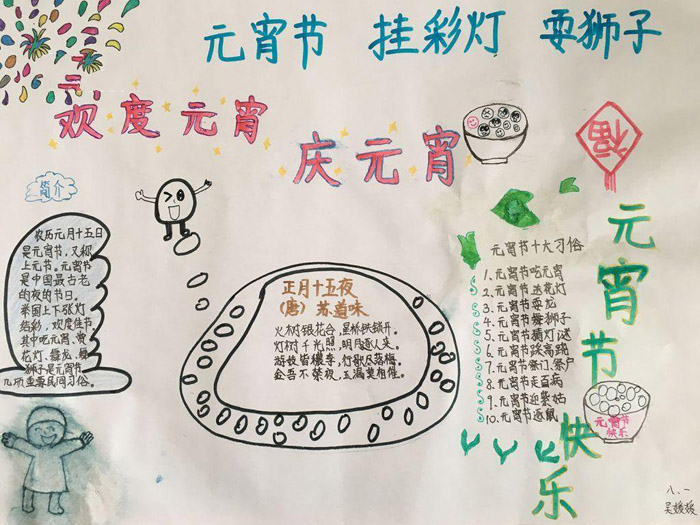 元宵节 挂彩灯 耍狮子
欢度元宵
庆元宵
福
简介
农历元月十五日
是元宵节，又称
上元节。元宵节
是中国最古老
的夜的节日。
举国上下张灯
结彩，欢度佳节
其中吃元宵、赏
花灯、舞龙、舞
狮子是元宵节
几项重要民间习俗。
正月十五夜
（唐）苏道味
火树银花合，星桥铁锁开。
灯树千光照，明月逐人来。
游妓皆秾李，行歌尽落梅。
金吾不禁夜，玉漏莫相催。
元宵节十大习俗
1.元宵节吃元宵
2.元宵节送花灯
3.元宵节耍龙
4.元宵节舞狮子
5.元宵节猜灯谜
6.元宵节踩高跷
7.元宵节祭门、祭户
8.元宵节走百病
9.元宵节迎紫姑
10.元宵节逐鼠
元宵节快乐
元宵节
快乐
八、一
吴媛媛